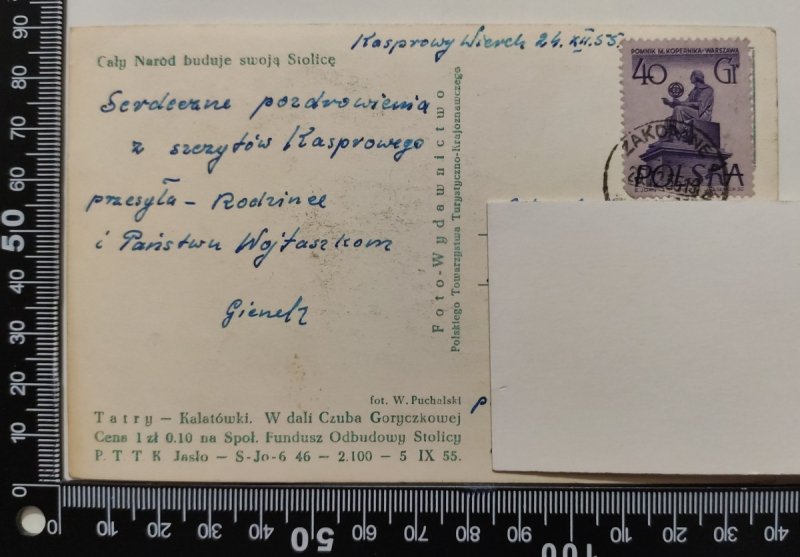 Cały Naród buduje swoją Stolicę
Kasprowy Wierch 24.XII.55.
Serdeczne pozdrowienia
z szczytów Kasprowego
przesyła – Rodzince
i Państwu Wojtaszkom
Foto-Wydawnictwo
Polskiego Towarzystwa Turystyczno-Krajoznawczego
POMNIK M. KOPERNIKA-WARSZAWA
40 Gr
ZAKOPANE
POLSKA
fot. W. Puchalski
Tatry — Kalatówki. W dali Czuba Goryczkowej
Cena 1 zł 0.10 na Społ. Fundusz Odbudowy Stolicy
P. T. T. K Jasło — S-Jo-6 46 — 2.100 — 5 IX 55.
90
80
70
60
50
40
30
20
10
0
0 10 20 30 40 50 60 70 80 90 100 10 20 30 40